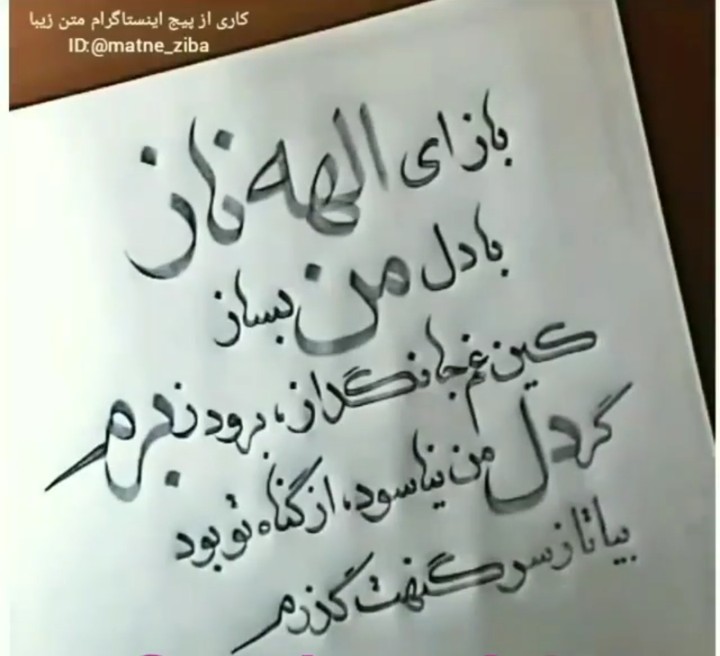 کاری از پیج اینستاگرام متن زیبا
ID:@matne_ziba
باز ای الهه ناز
با دل من بساز
کین غم جانگداز، برود ز برم
گر دل من نیاسود، از گناه تو بود
بیا تا ز سر گنهت گذرم